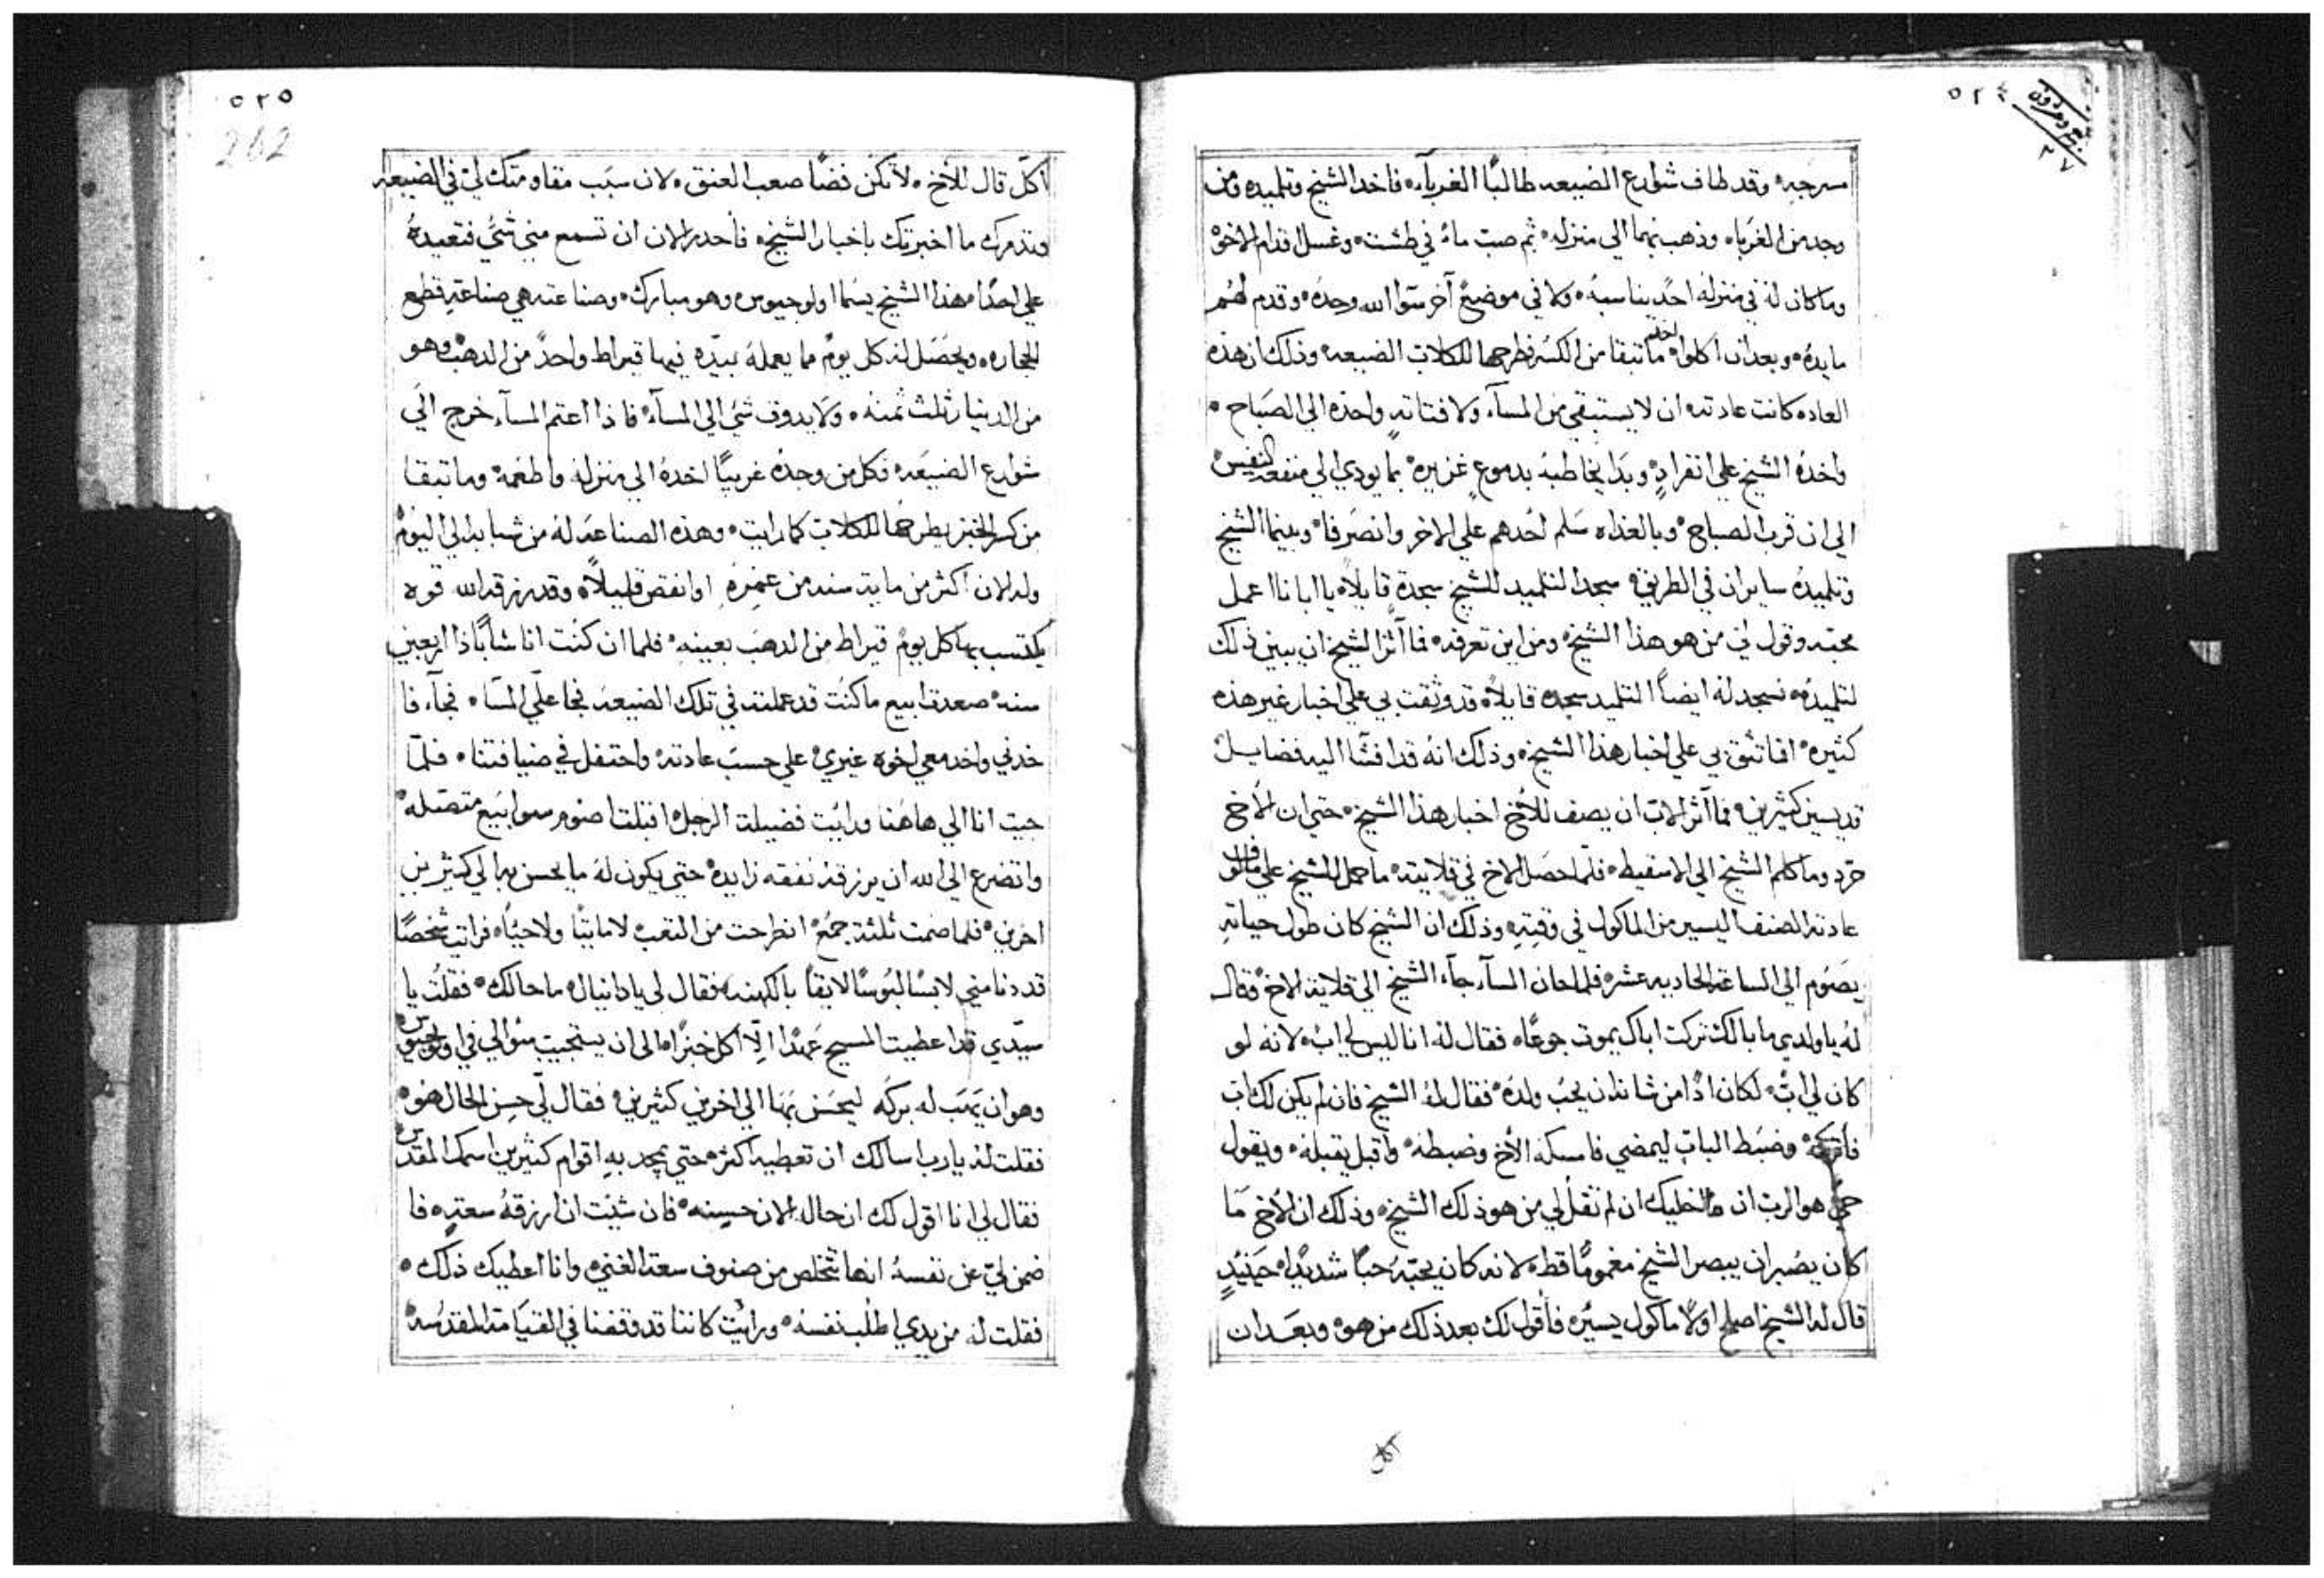 ٥٢٤
مسرجه وقد طاف شوارع الضيعه طالبًا الغربآء فاخد الشيخ وتلميده ومن
وجد من الغرباء وذهب بهما الي منزله ثم صبت ماءً في طشت وغسل اقدام الاخوة
وما كان له في منزله احدٌ يناسبهُ ولا في موضعٍ آخر سوا الله وحدهُ وقدم لهم
مايدهُ وبعد ان اكلوا اخد ما تبقا من الكسر فطرحها لكلاب الضيعه وذلك ان هذه
العاده كانت عادته ان لا يستبقي من المسآء ولا فتاته واحده الي الصَباح
واخدهُ الشيخ علي انفرادٍ وبَدا يخاطبهُ بدموعٍ غزيرهٍ بما يودي الي منفعة النفس
الي ان قرب الصباح وبالغداه سَلم احدهم علي الاخر وانصَرفا وبينما الشيخ
وتلميدهُ سايران في الطريق سجد التلميد للشيخ سجدةً قايلاً يا ابانا اعمل
محبته وقول لي من هو هذا الشيخ ومن اين تعرفه فما آثر الشيخ ان يبين ذلك
لتلميدهُ فسجد له ايضاً التلميد سجده قايلاً قد وثقت بي علي اخبار غير هذه
كثيره افما تثق بي علي اخبار هذا الشيخ وذلك انه قد افشا اليه فضايل
قديسين كثيرين فما آثر الاب ان يصف للاخ اخبار هذا الشيخ حتي ان الاخ
حرد وما كلم الشيخ الي الاسقيط فلمّا حصَل الاخ في قلايته ما حمل للشيخ علي مالوف
عادته الصنف اليسير من الماكول في وقتِه وذلك ان الشيخ كان طول حياتهِ
يصَوم الي الساعة الحاديه عشر فلما حان المسآء جآء الشيخ الي قلاية الاخ وقال
لهُ يا ولدي ما بالك تركت اباك يموت جوعًا فقال لهُ انا ليس لي ابٌ لانه لو
كان لي ابٌ لكان اذًا من شانه ان يحُب ولدهُ فقال لهُ الشيخ فان لم يكن لك اب
فاتركهُ وضبَط الباب ليمضي فامسكه الأخ وضبطهُ واقبل يقبله ويقول
حيٌ هو الرب ان ما اخليك ان لم تقل لي من هو ذلك الشيخ وذلك ان الأخ ما
كان يصَبر ان يبصر الشيخ مغمومًا قط لانه كان يحبّهُ حبًا شديدًا حينيدٍ
قال له الشيخ اصلح اولاً ماكول يسير فأقول لك بعد ذلك من هو وبعَد ان
اكل
٥٢٥
262
اكل قال للأخ لا تكن فضًا صعب العنق لان سبَب مقاومتك لي في الضيعه
وتدمرك ما اخبرتك باخبار الشيخ فأحدر الان ان تسمع مني شيء فتعيدهُ
علي احدٍ هذا الشيخ يسَما اولوجيوس وهو مبارك وصناعته هي صناعة قطع
الحجاره ويحصَل له كل يوم مما يعملهُ بيدّه فيها قيراط واحدٌ من الدهب وهو
من الدينار ثلث ثمنه ولا يدوق شي الي المسآء فاذا اعتم المسآء خرج الَي
شوارع الضيعَه فكل من وجدهُ غريبًا اخدهُ الي منزله واطعمهُ وما تبقا
من كسر الخبز يطرحَها للكلاب كما رايت وهذه الصناعة لهُ من شبابه الي اليَوم
وله الان اكثر من ماية سنه من عمرِه او انقص قليلاً وقد رزقه الله قوه
يكتسب بها كل يوم قيراط من الدهبَ بعينهِ فلما ان كنُت انا شابًا ذا اربعين
سنه صعدت ابيع ما كنُت قد عملته في تلك الضيعَه فجا علّي المسّاء فجآء فا
خدني واخد معي اخوه غيري علي حسَب عادته واحتفل في ضيافتنا فلمّا
جيت انا الي هاهَنا ورايُت فضيلة الرجل اقبلت اصَوم سوابيَع متصَله
واتضرع الي الله ان يرزقهُ نفقه زايده حتي يكون لهُ ما يحسن به الي كثيرين
اخرين فلما صَمت ثلثة جمعُ انطرحت من التعب لا مايتًا ولا حيًا فرايت شخصًا
قد دنا مني لابسًا لبُوسًا لايقًا بالكهنه فقال لي يا دانيال ما حالك فقلُت يا
سيّدي قد اعطيت المسيح عَهدًا الّا اكل خبزًا الي ان يستجيب سُوالي في اولوجيوس
وهو ان يَهَب له بركه ليحَسَن بهَا الي اخرين كثيرين فقال لّي حِسن الحال هُو
فقلت له يا رب اسالك ان تعطيه اكثر حتي يمجد بهِ اقوام كثيرين اسمك المقدس
فقال لي انا اقول لك ان حاله الان حسِنه فان شيُت ان ارزقهُ سعته فا
ضمن لّي عن نفسهُ انها تتخلص من صنوف سعة الغني وانا اعطيك ذلك
فقلت لهُ من يدي اطلُب نفسهُ ورايُت كاننا قد وقفنا في القيَامة المقدسَه